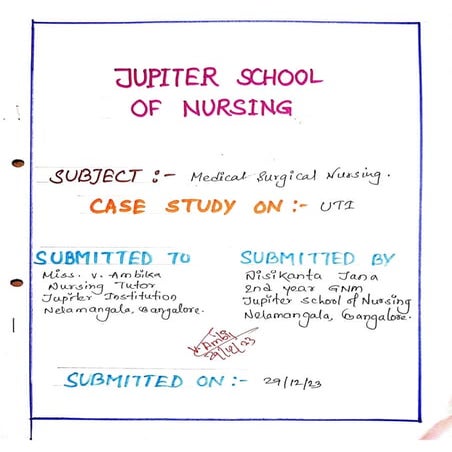 JUPITER SCHOOL
OF NURSING
SUBJECT :- Medical Surgical Nursing.
CASE STUDY ON :- UTI
SUBMITTED TO
Miss. V. Ambika
Nursing Tutor
Jupiter Institution
Nelamangala, Bangalore.
SUBMITTED BY
Disikanta Jana
2nd year GNM
Jupiter School of Nursing
Nelamangala, Bangalore.
29/12/23
SUBMITTED ON :- 29/12/23